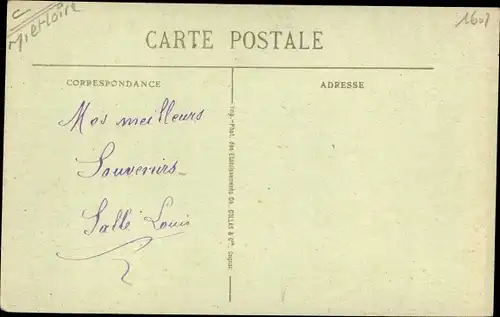 M. et Loire
1607
CARTE POSTALE
CORRESPONDANCE
ADRESSE
Mes meilleurs
Souvenirs
Sallé Louis
Imp.-Phot. des Etablissements Ch. COLLAS & Cie, Cognac